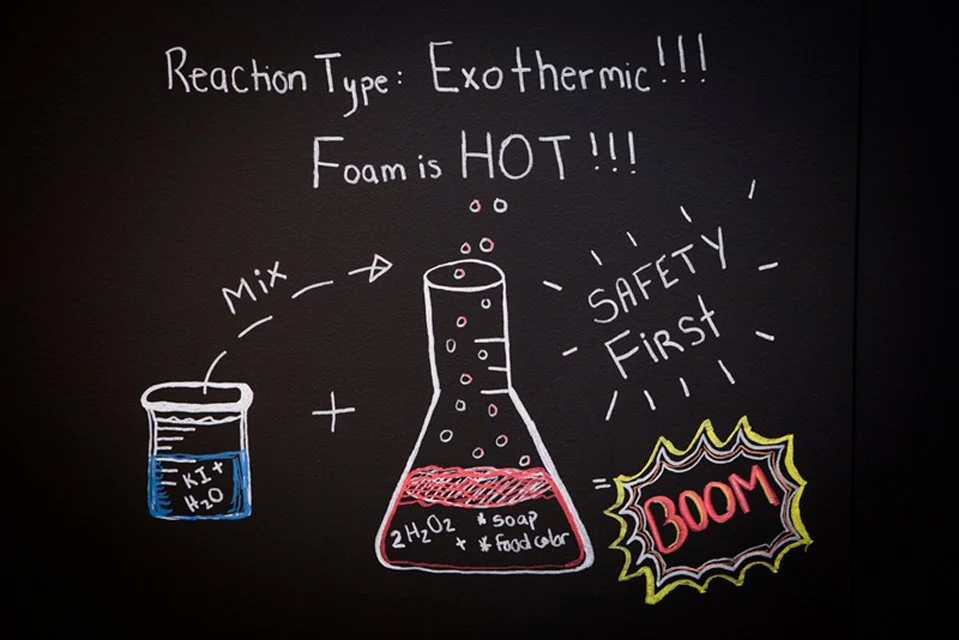 Reaction Type: Exothermic!!!
Foam is HOT!!!
Mix
SAFETY
First
+
KI +
H₂O
2H₂O₂ * soap
+ * food color
=
BOOM